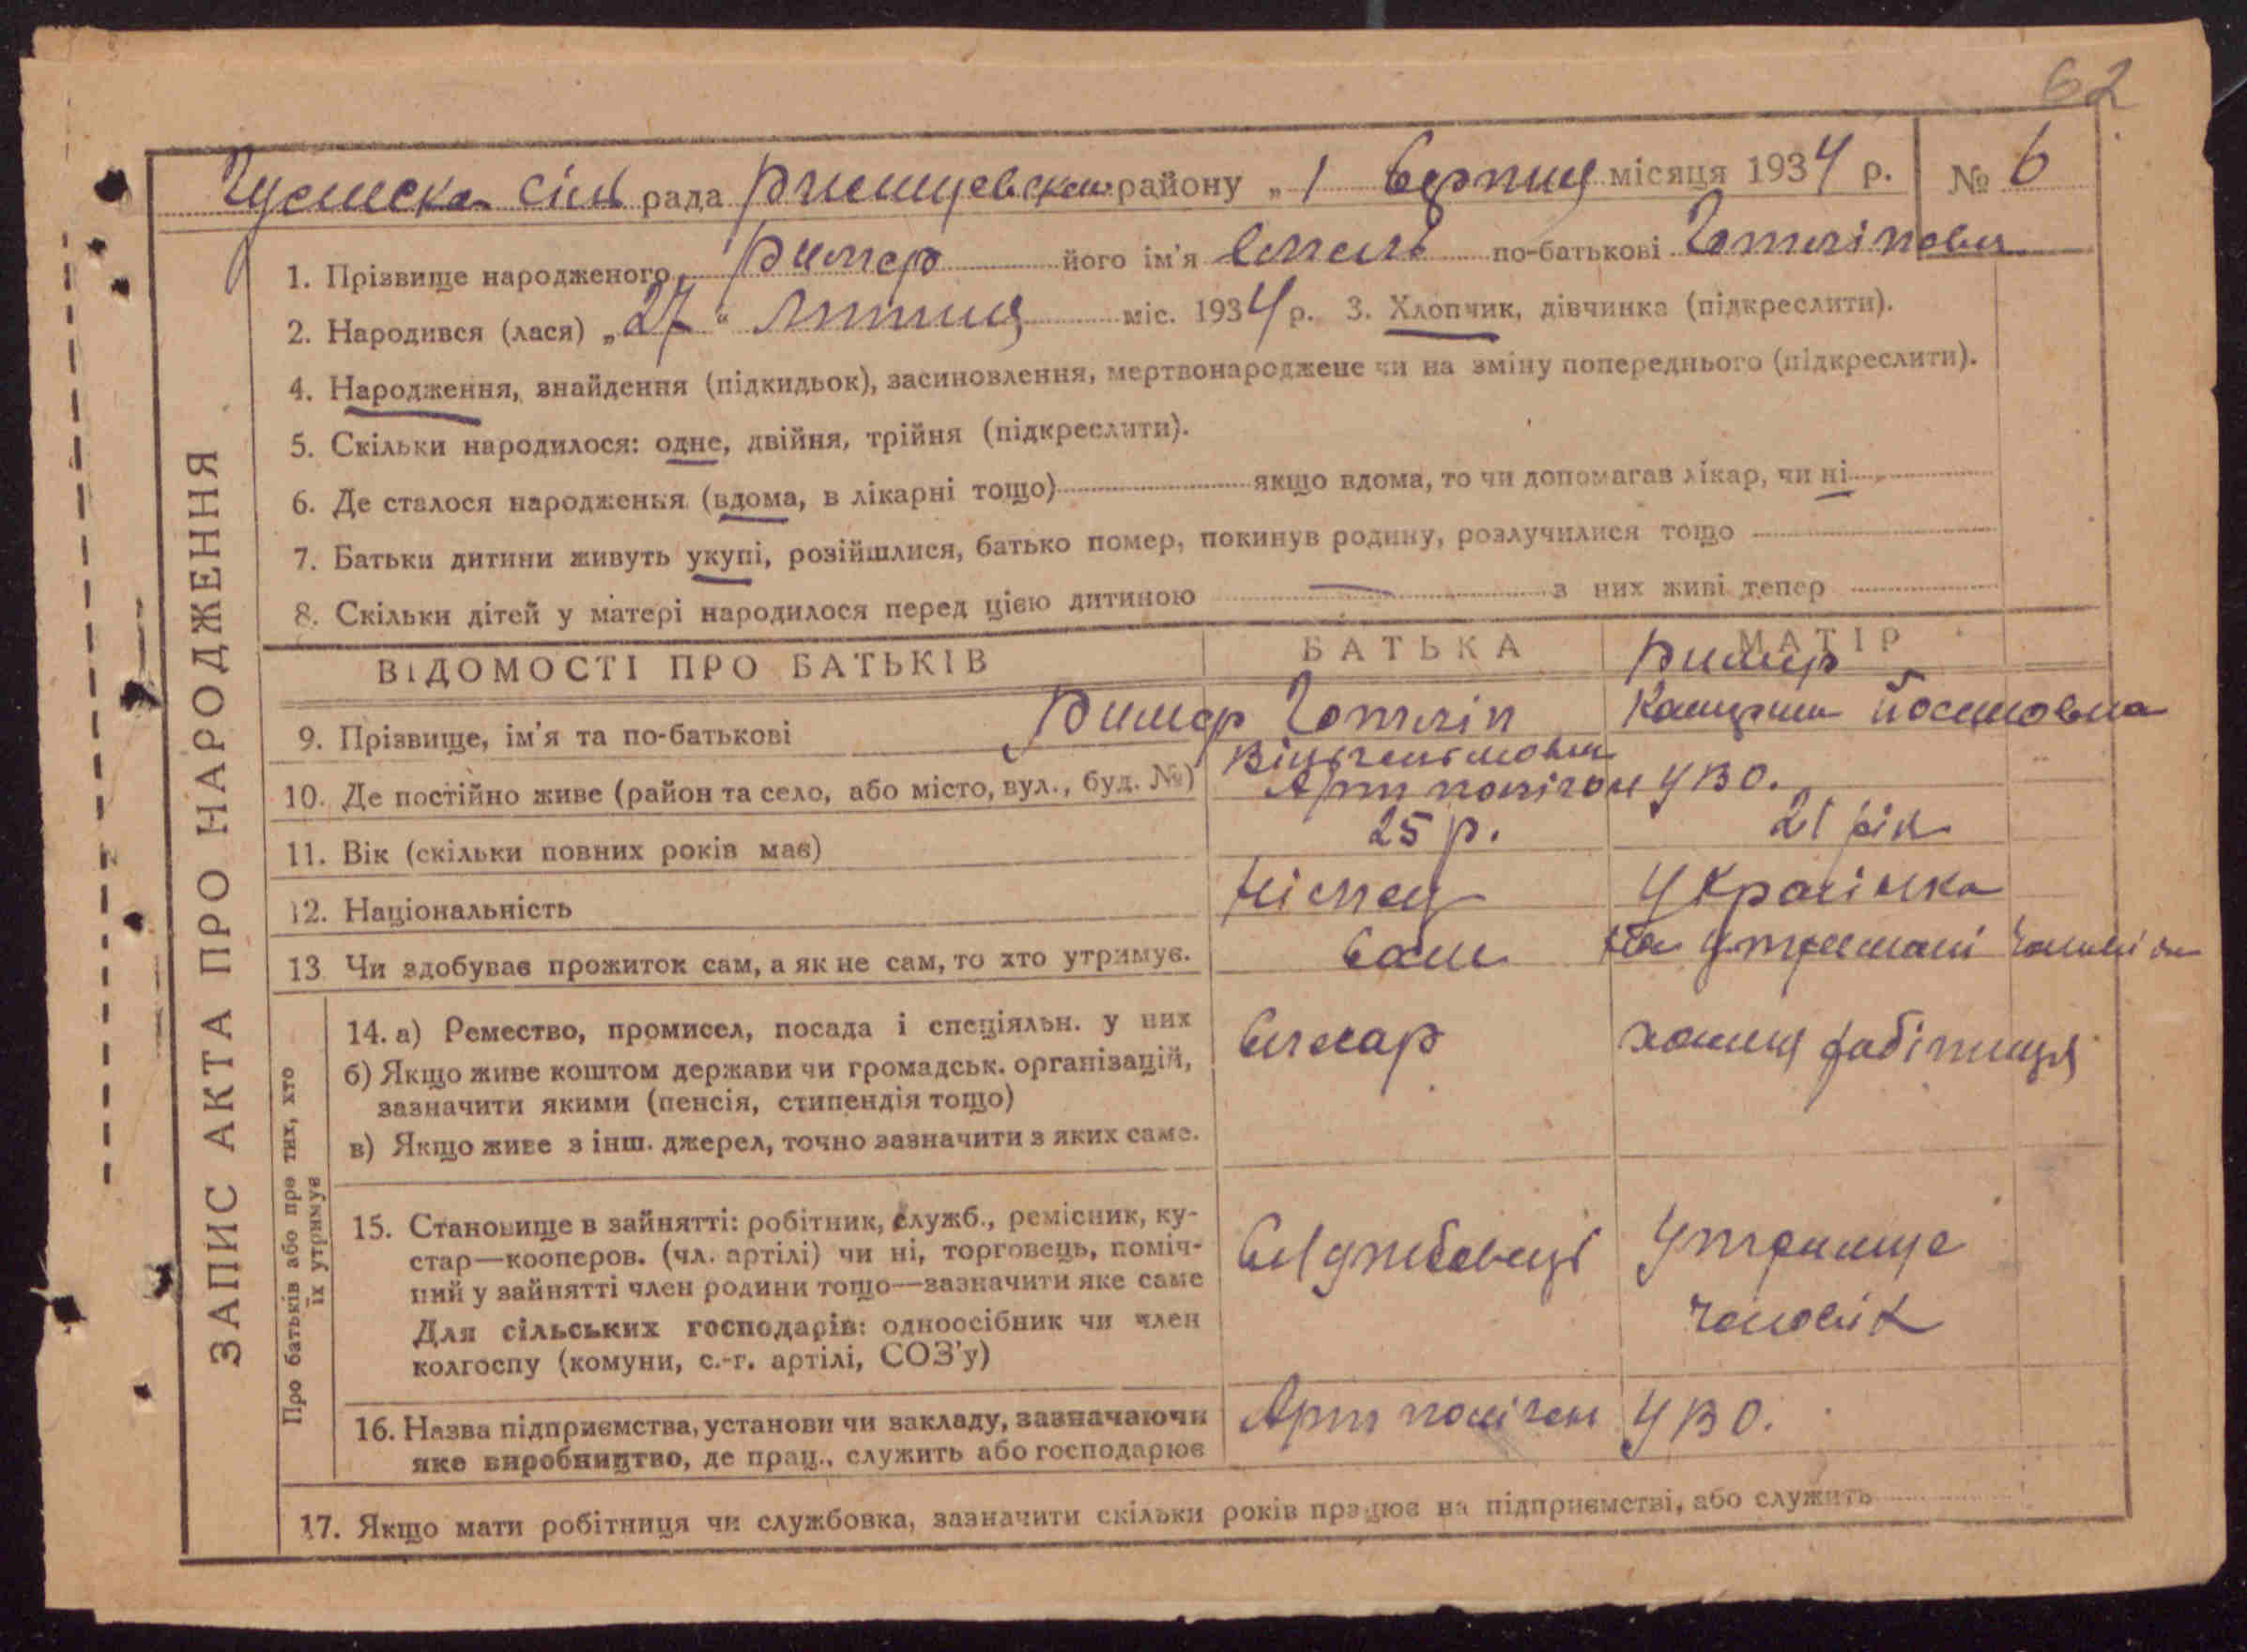 62
сіль рада району „1 серпня місяця 1934 р. № 6
1. Прізвище народженого його ім'я по-батькові
2. Народився (лася) „27“ липня міс. 1934 р. 3. Хлопчик, дівчинка (підкреслити).
4. Народження, знайдення (підкидьок), засиновлення, мертвонароджене чи на зміну попереднього (підкреслити).
5. Скільки народилося: одне, двійня, трійня (підкреслити).
6. Де сталося народження (вдома, в лікарні тощо) якщо вдома, то чи допомагав лікар, чи ні
7. Батьки дитини живуть укупі, розійшлися, батько помер, покинув родину, розлучилися тощо
8. Скільки дітей у матері народилося перед цією дитиною — з них живі тепер
ВІДОМОСТІ ПРО БАТЬКІВ БАТЬКА МАТІР
9. Прізвище, ім'я та по-батькові
10. Де постійно живе (район та село, або місто, вул., буд. №) Арт полігон УВО.
11. Вік (скільки повних років має) 25 р. 21 рік
12. Національність Німец Українка
13 Чи здобуває прожиток сам, а як не сам, то хто утримує. Сам На утримані
14. а) Ремество, промисел, посада і спеціяльн. у них Слюсар хатня робітниця
б) Якщо живе коштом держави чи громадськ. організацій,
зазначити якими (пенсія, стипендія тощо)
в) Якщо живе з інш. джерел, точно зазначити з яких саме.
15. Становище в зайнятті: робітник, служб., ремісник, ку-
стар—кооперов. (чл. артілі) чи ні, торговець, поміч-
ний у зайнятті член родини тощо—зазначити яке саме
Для сільських господарів: одноосібник чи член
колгоспу (комуни, с.-г. артілі, СОЗ'у)
чоловік
16. Назва підприємства, установи чи закладу, зазначаючи Арт полігон УВО.
яке виробництво, де прац., служить або господарює
17. Якщо мати робітниця чи службовка, зазначити скільки років працює на підприємстві, або служить
ЗАПИС АКТА ПРО НАРОДЖЕННЯ
Про батьків або про тих, хто
їх утримує